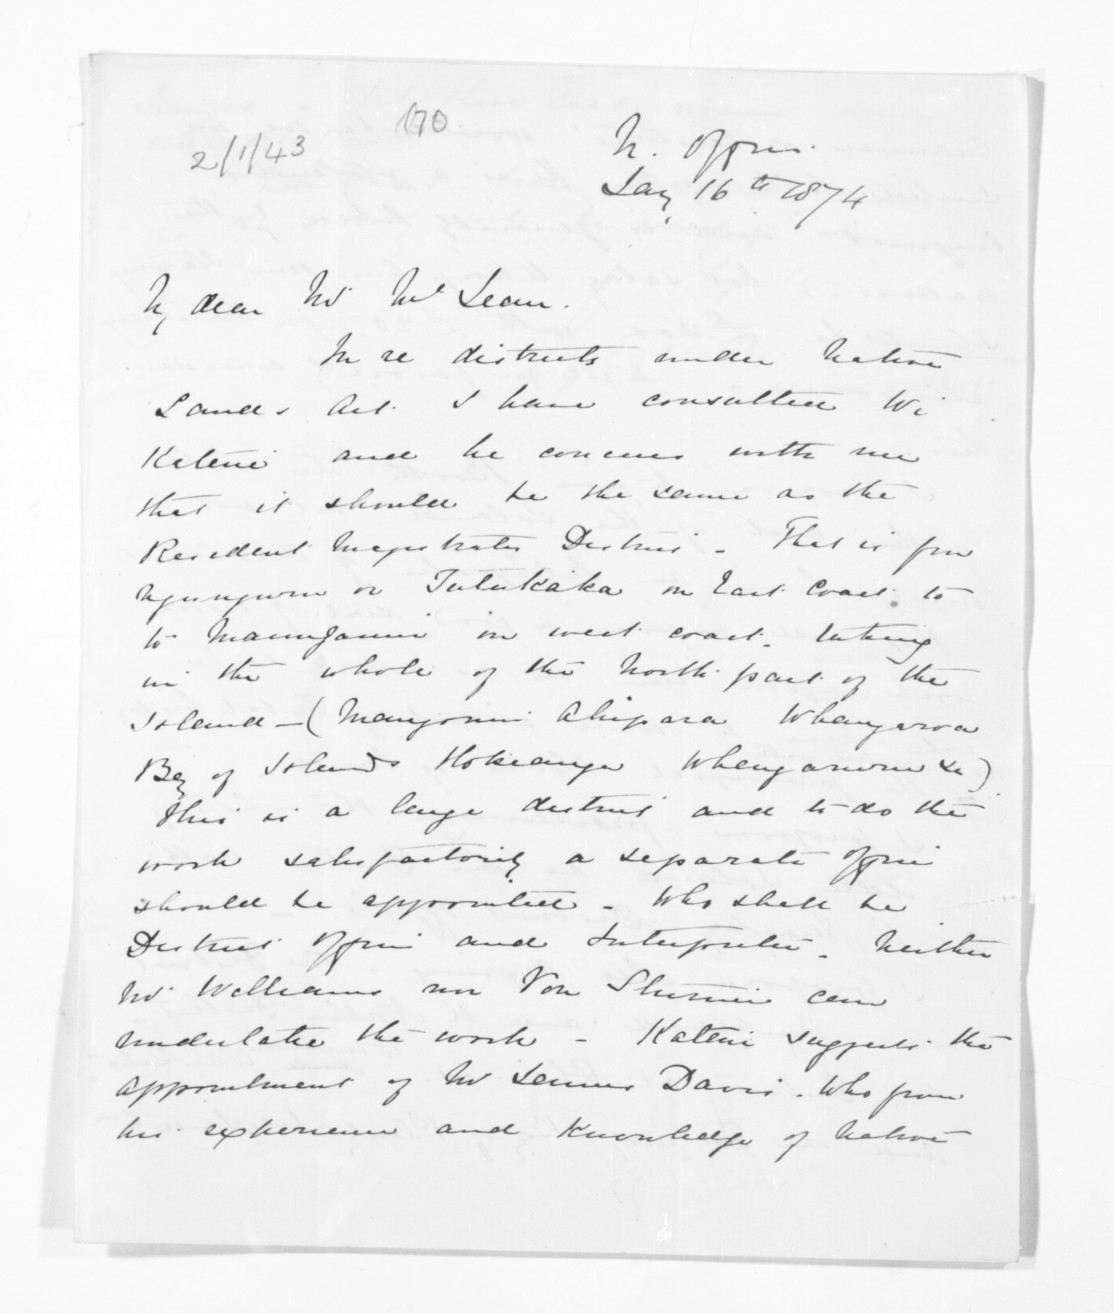 170.
2/1/43
N. Office.
Jany 16th 1874
My dear Mr McLean.
In re districts under Native
Lands Act. I have consulted Wi
Katene and he concurs with me
that it should be the same as the
Resident Magistrates District - That is from
Ngunguru or Tutukaka on East Coast to
to Maunganui on west coast. taking
in the whole of the North part of the
Island - (Mangonui Ahipara Whangaroa
Bay of Islands Hokianga Whangaruru &c)
This is a large district and to do the
work satisfactorily a separate officer
should be appointed - Who shall be
District Officer and Interpreter. Neither
Mr Williams nor Von Sturmer can
undertake the work - Katene suggests the
appointment of Mr James Davis. Who from
his experience and knowledge of Native